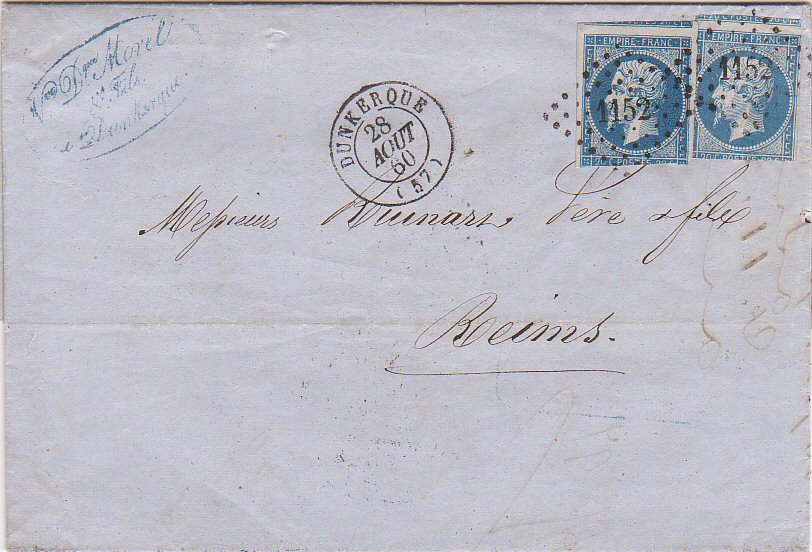 Vve Dque Morel
& Fils
à Dunkerque
EMPIRE FRANC
1152
20 C POSTES 20 C
EMPIRE FRANC
1152
20 C POSTES 20 C
DUNKERQUE
28
AOUT
60
(57)
Messieurs Ruinart Père & fils
Reims.